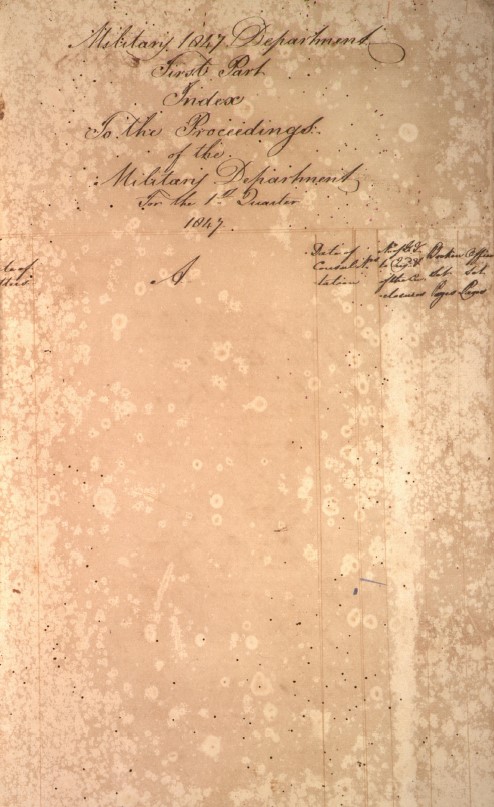 Military 1847 Department
First Part
Index
To the Proceedings
of the
Military Department
For the 1st Quarter
1847.
A
Date of
Consul
tation
Nos
Broken
Set
Pages
Office
Set
Pages